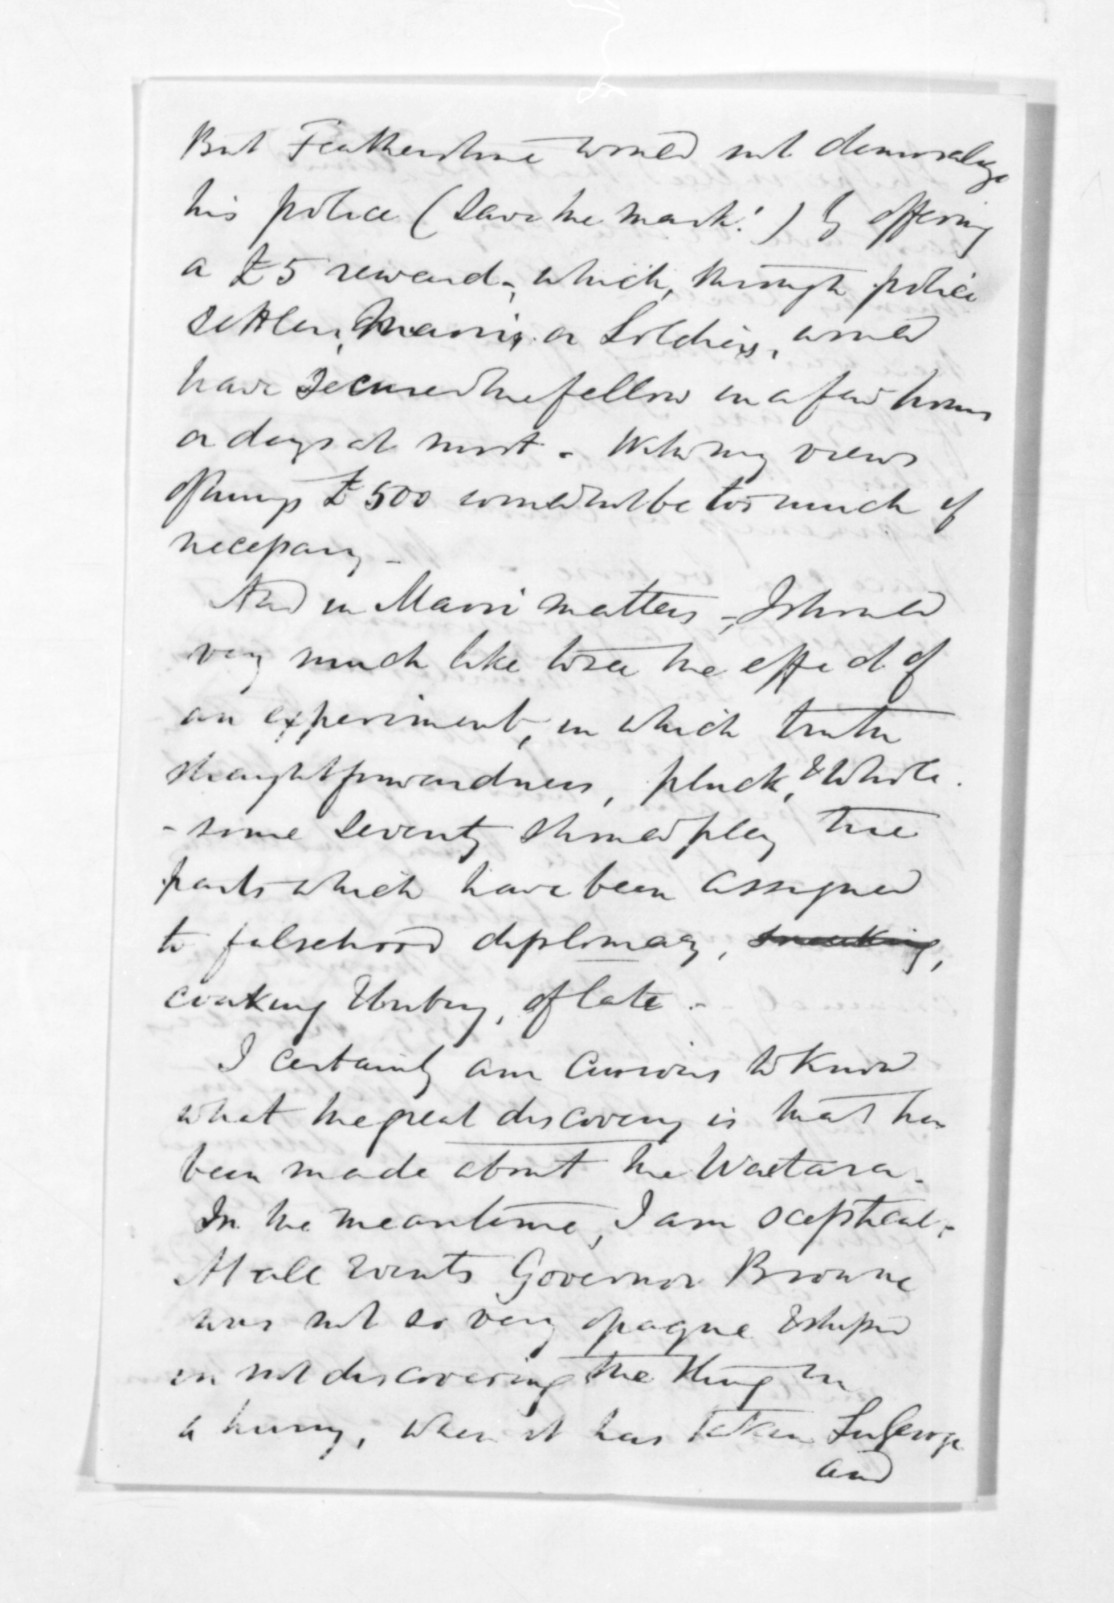 But Featherstone would not demoralize
his police (save the mark!) by offering
a £5 reward; which, through police
settlers, Maoris, or Soldiers, would
have secured the fellow in a few hours
or days at most. With my views
of things £500 would not be too much if
necessary—
And in Maori matters, I should
very much like to see the effect of
an experiment, in which truth
straightforwardness, pluck, & whole
-some severity should play the
parts which have been assigned
to falsehood diplomacy,
coaxing & bribery, of late.—
I certainly am curious to know
what the great discovery is that has
been made about the Waitara.
In the meantime, I am sceptical.
At all events Governor Browne
was not so very opaque & stupid
in not discovering the thing in
a hurry, when it has taken Sir George
and